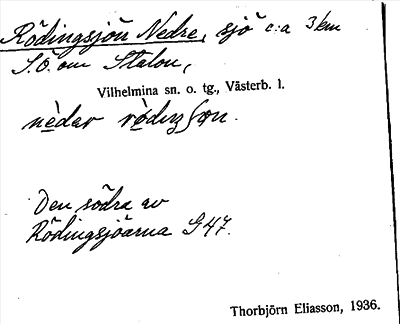 Rödingsjön Nedre, sjö c:a 3 km
S.Ö. om Stalon,
Vilhelmina sn. o. tg., Västerb. l.
nèdar
Den södra av
Rödingsjöarna G47.
Thorbjörn Eliasson, 1936.